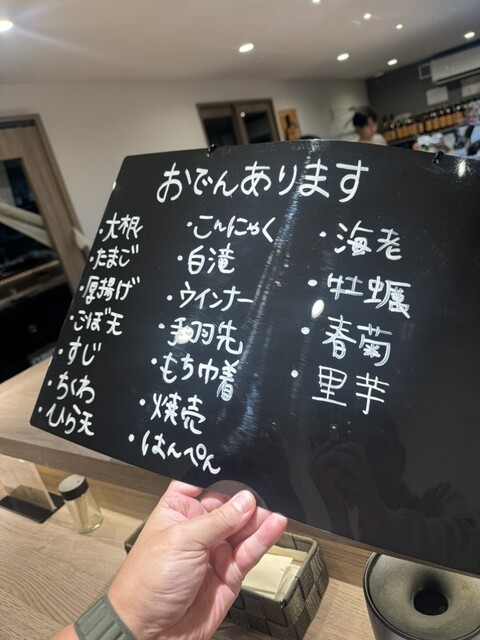 おでんあります
・大根
・たまご
・厚揚げ
・ごぼ天
・すじ
・ちくわ
・ひら天
・こんにゃく
・白滝
・ウインナー
・手羽先
・もち巾着
・焼売
・はんぺん
・海老
・牡蠣
・春菊
・里芋